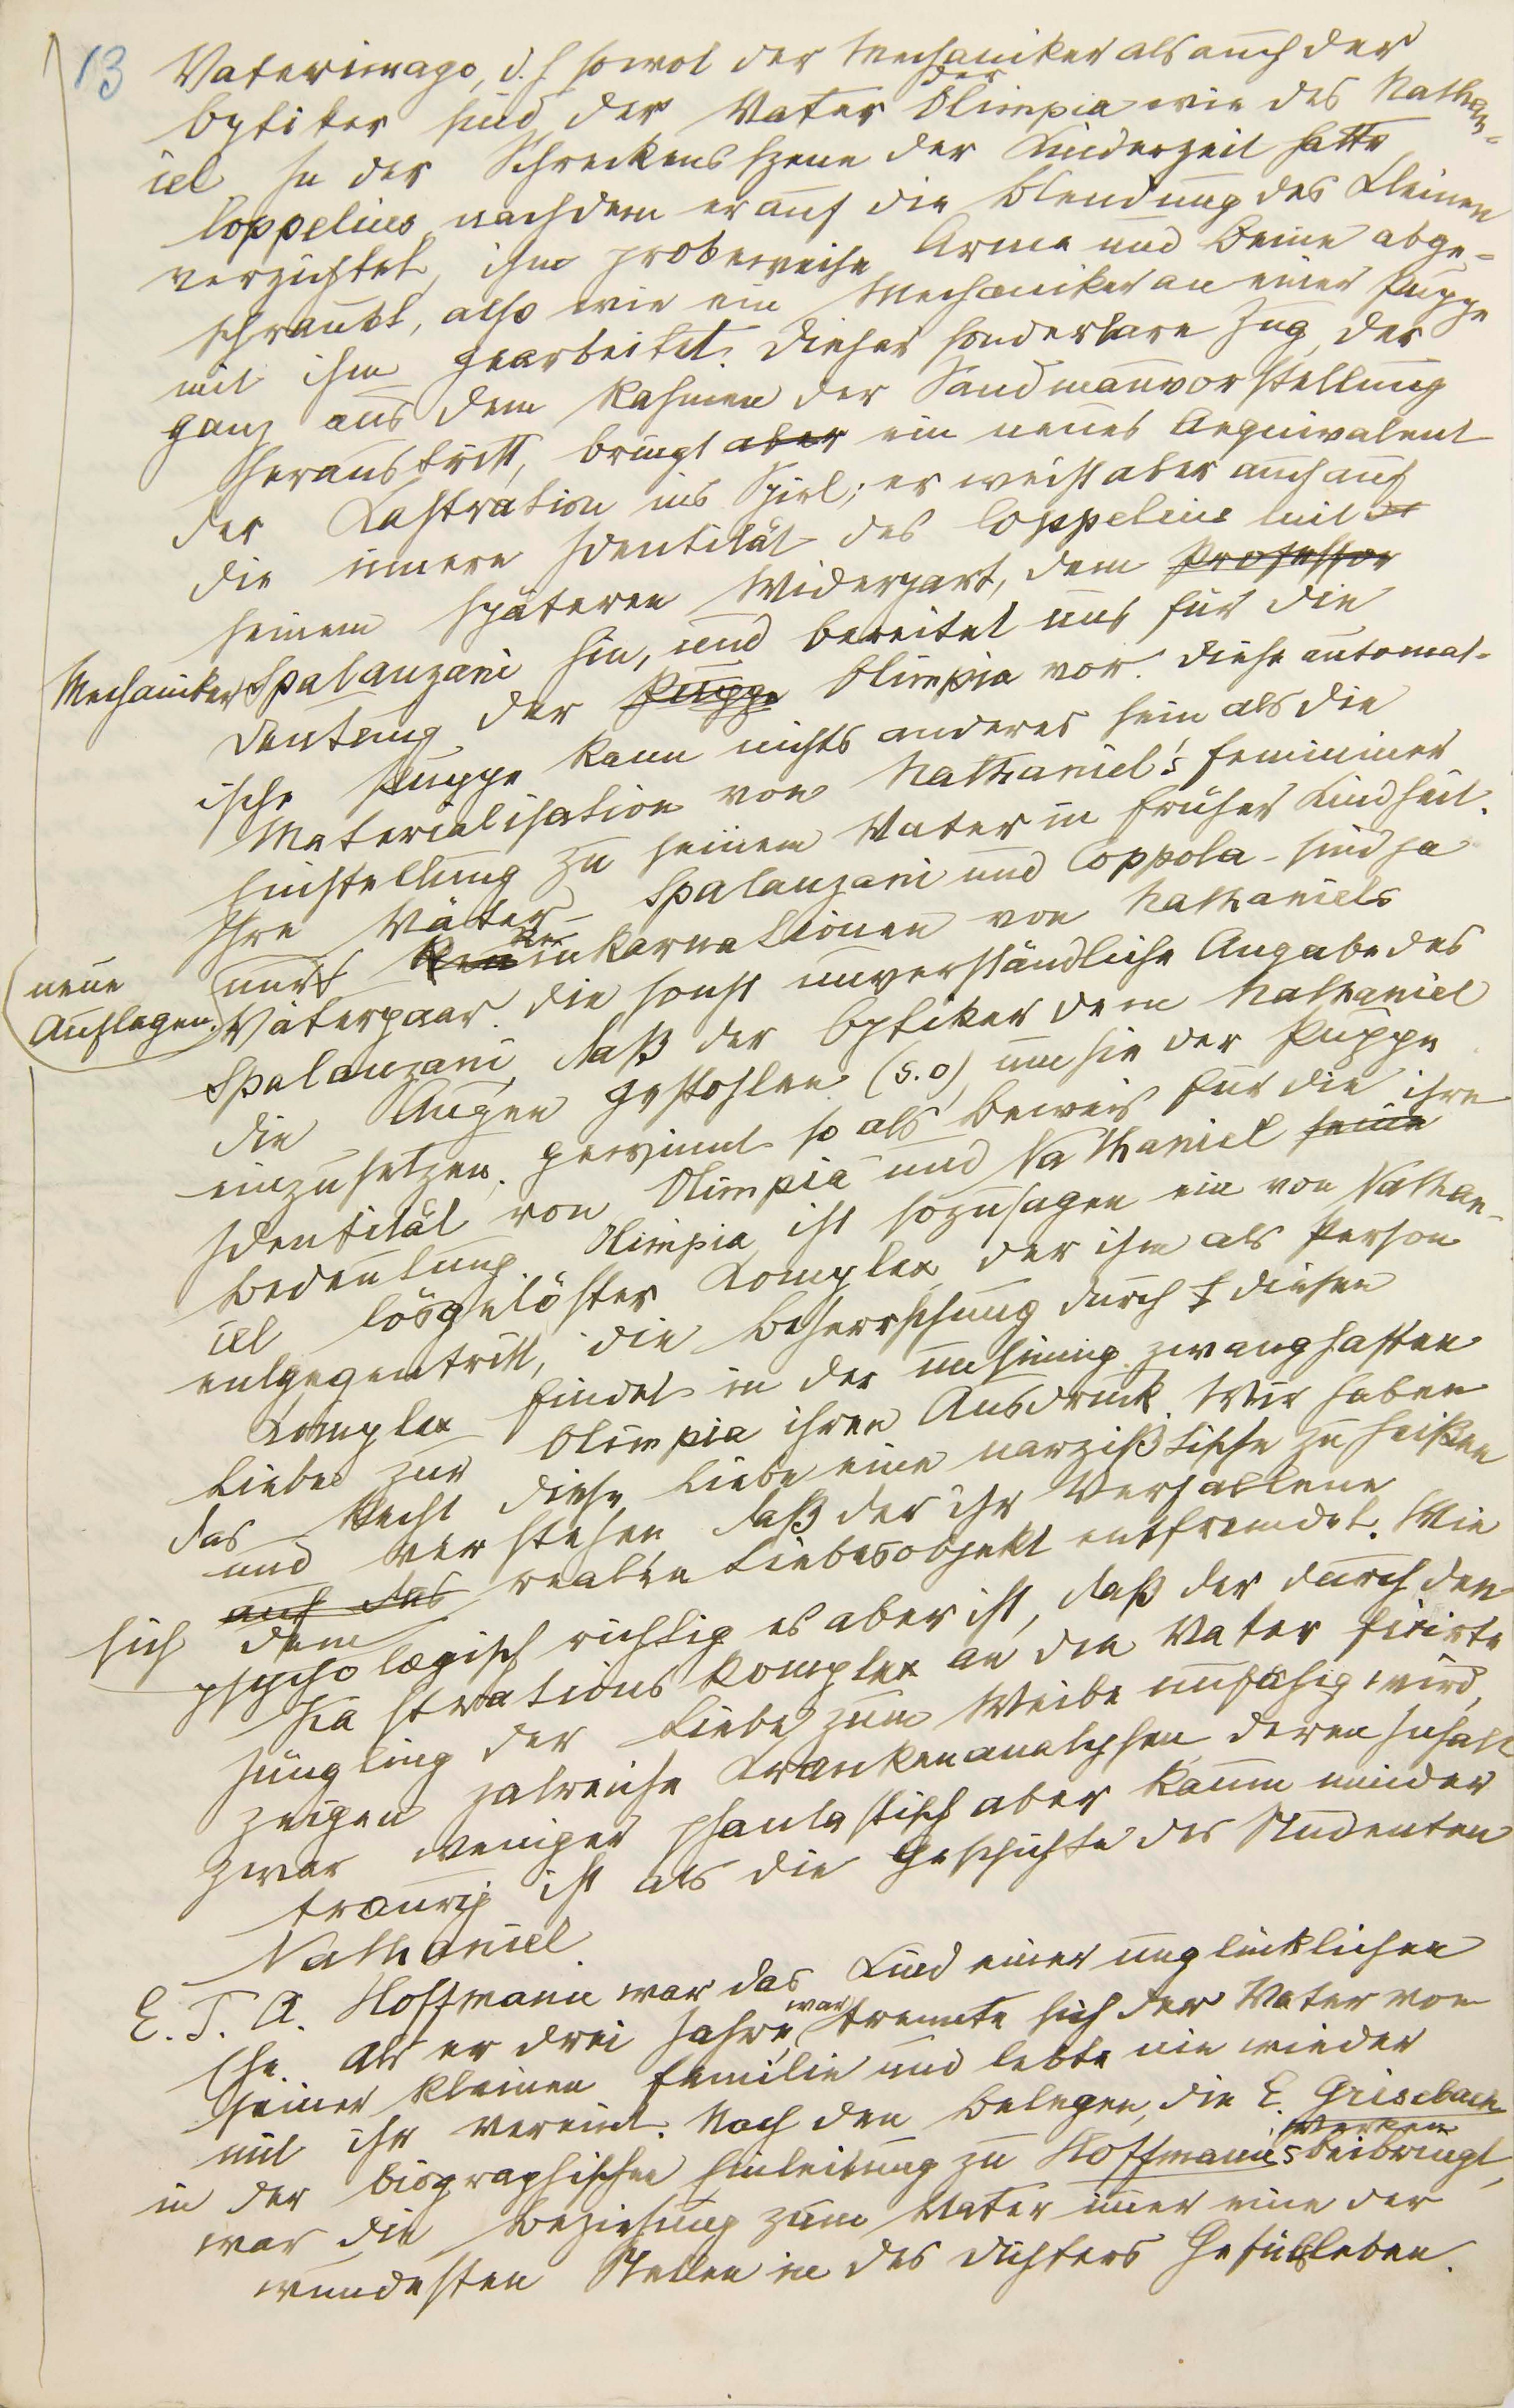 13
Vaterimago, d. h sowol der Mechaniker als auch der
Optiker sind der Vater der Olimpia wie des Nathan-
iel In der Schreckensszene der Kinderzeit hatte
Coppelius, nachdem er auf die Blendung des Kleinen
verzichtet, ihm probeweise Arme und Beine abge-
schraubt, also wie ein Mechaniker an einer Puppe
mit ihm gearbeitet. Dieser sonderbare Zug, der
ganz aus dem Rahmen der Sandmannvorstellung
heraustritt, bringt aber ein neues Aequivalent
der Kastration ins Spiel; er weist aber auch auf
die innere Identität des Coppelius mit
seinem späteren Widerpart, dem Professor
Mechaniker Spalanzani hin, und bereitet uns für die
Deutung der Puppe Olimpia vor. Diese automat-
ische Puppe kann nichts anderes sein als die
Materialisation von Nathaniel's femininer
Einstellung zu seinem Vater in früher Kindheit.
Ihre Väter – Spalanzani und Coppola – sind ja
nur Reinkarnationen von Nathaniels
neue
Auflagen,
Väterpaar. Die sonst unverständliche Angabe des
Spalanzani, daß der Optiker dem Nathaniel
die Augen gestohlen (s. o), um sie der Puppe
einzusetzen, gewinnt so als Beweis für die ihre
Identität von Olimpia und Nathaniel seine
Bedeutung. Olimpia ist sozusagen ein von Nathan-
iel losgelöster Komplex, der ihm als Person
entgegentritt, die Beherrschung durch diesen
Komplex findet in der unsinnig zwanghaften
Liebe zur Olimpia ihren Ausdruck. Wir haben
das Recht diese Liebe eine narzißtische zu heißen
und verstehen, daß der ihr Verfallene
sich auf das dem realen Liebesobjekt entfremdet. Wie
psychologisch richtig es aber ist, daß der durch den
Kastrationskomplex an den Vater fixirte
Jüngling der Liebe zum Weibe unfähig wird,
zeigen zalreiche Krankenanalysen, deren Inhalt
zwar weniger phantastisch aber kaum minder
traurig ist als die Geschichte des Studenten
Nathaniel
E. T. A. Hoffmann war das Kind einer unglücklichen
Ehe. Als er drei Jahre war, trennte sich der Vater von
seiner kleinen Familie und lebte nie wieder
mit ihr vereint. Nach den Belegen, die E. Grisebach
in der biographischen Einleitung zu Hoffmanns Werken beibringt,
war die Beziehung zum Vater immer eine der
wundesten Stellen in des Dichters Gefühlsleben.